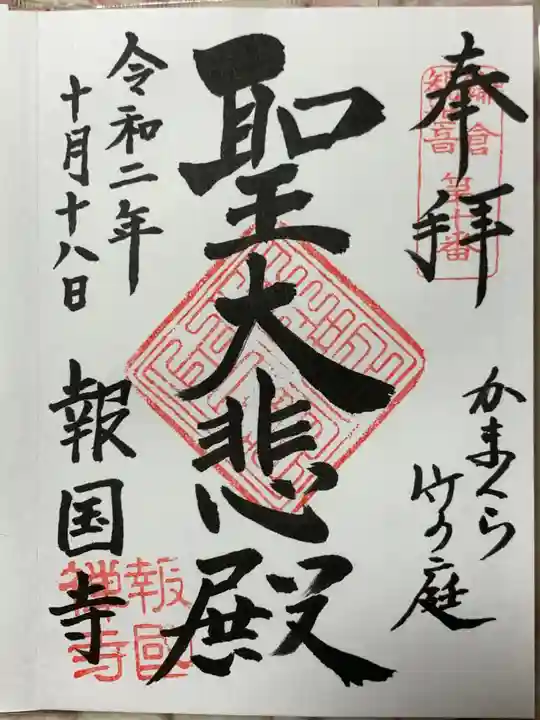 奉拝
鎌倉
観音
第十番
かまくら
竹の庭
聖大悲殿
令和二年
十月十八日
報国寺
報國
禅寺